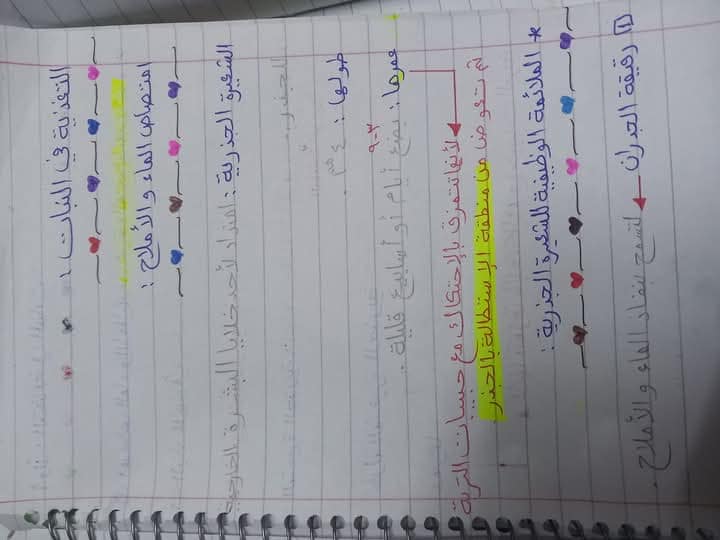 التغذية في النبات :
امتصاص الماء والأملاح :
الشعيرة الجذرية : امتداد لأحد خلايا البشرة الخارجية
للجذر .
طولها : ٤ مم .
عمرها : بضع أيام أو أسابيع قليلة .
لأنها تتمزق بالإحتكاك مع حبيبات التربة
ثم تعوض من منطقة الاستطالة بالجذر
* الملائمة الوظيفية للشعيرة الجذرية :
1 رقيقة الجدران
لتسمح بنفاذ الماء والأملاح .